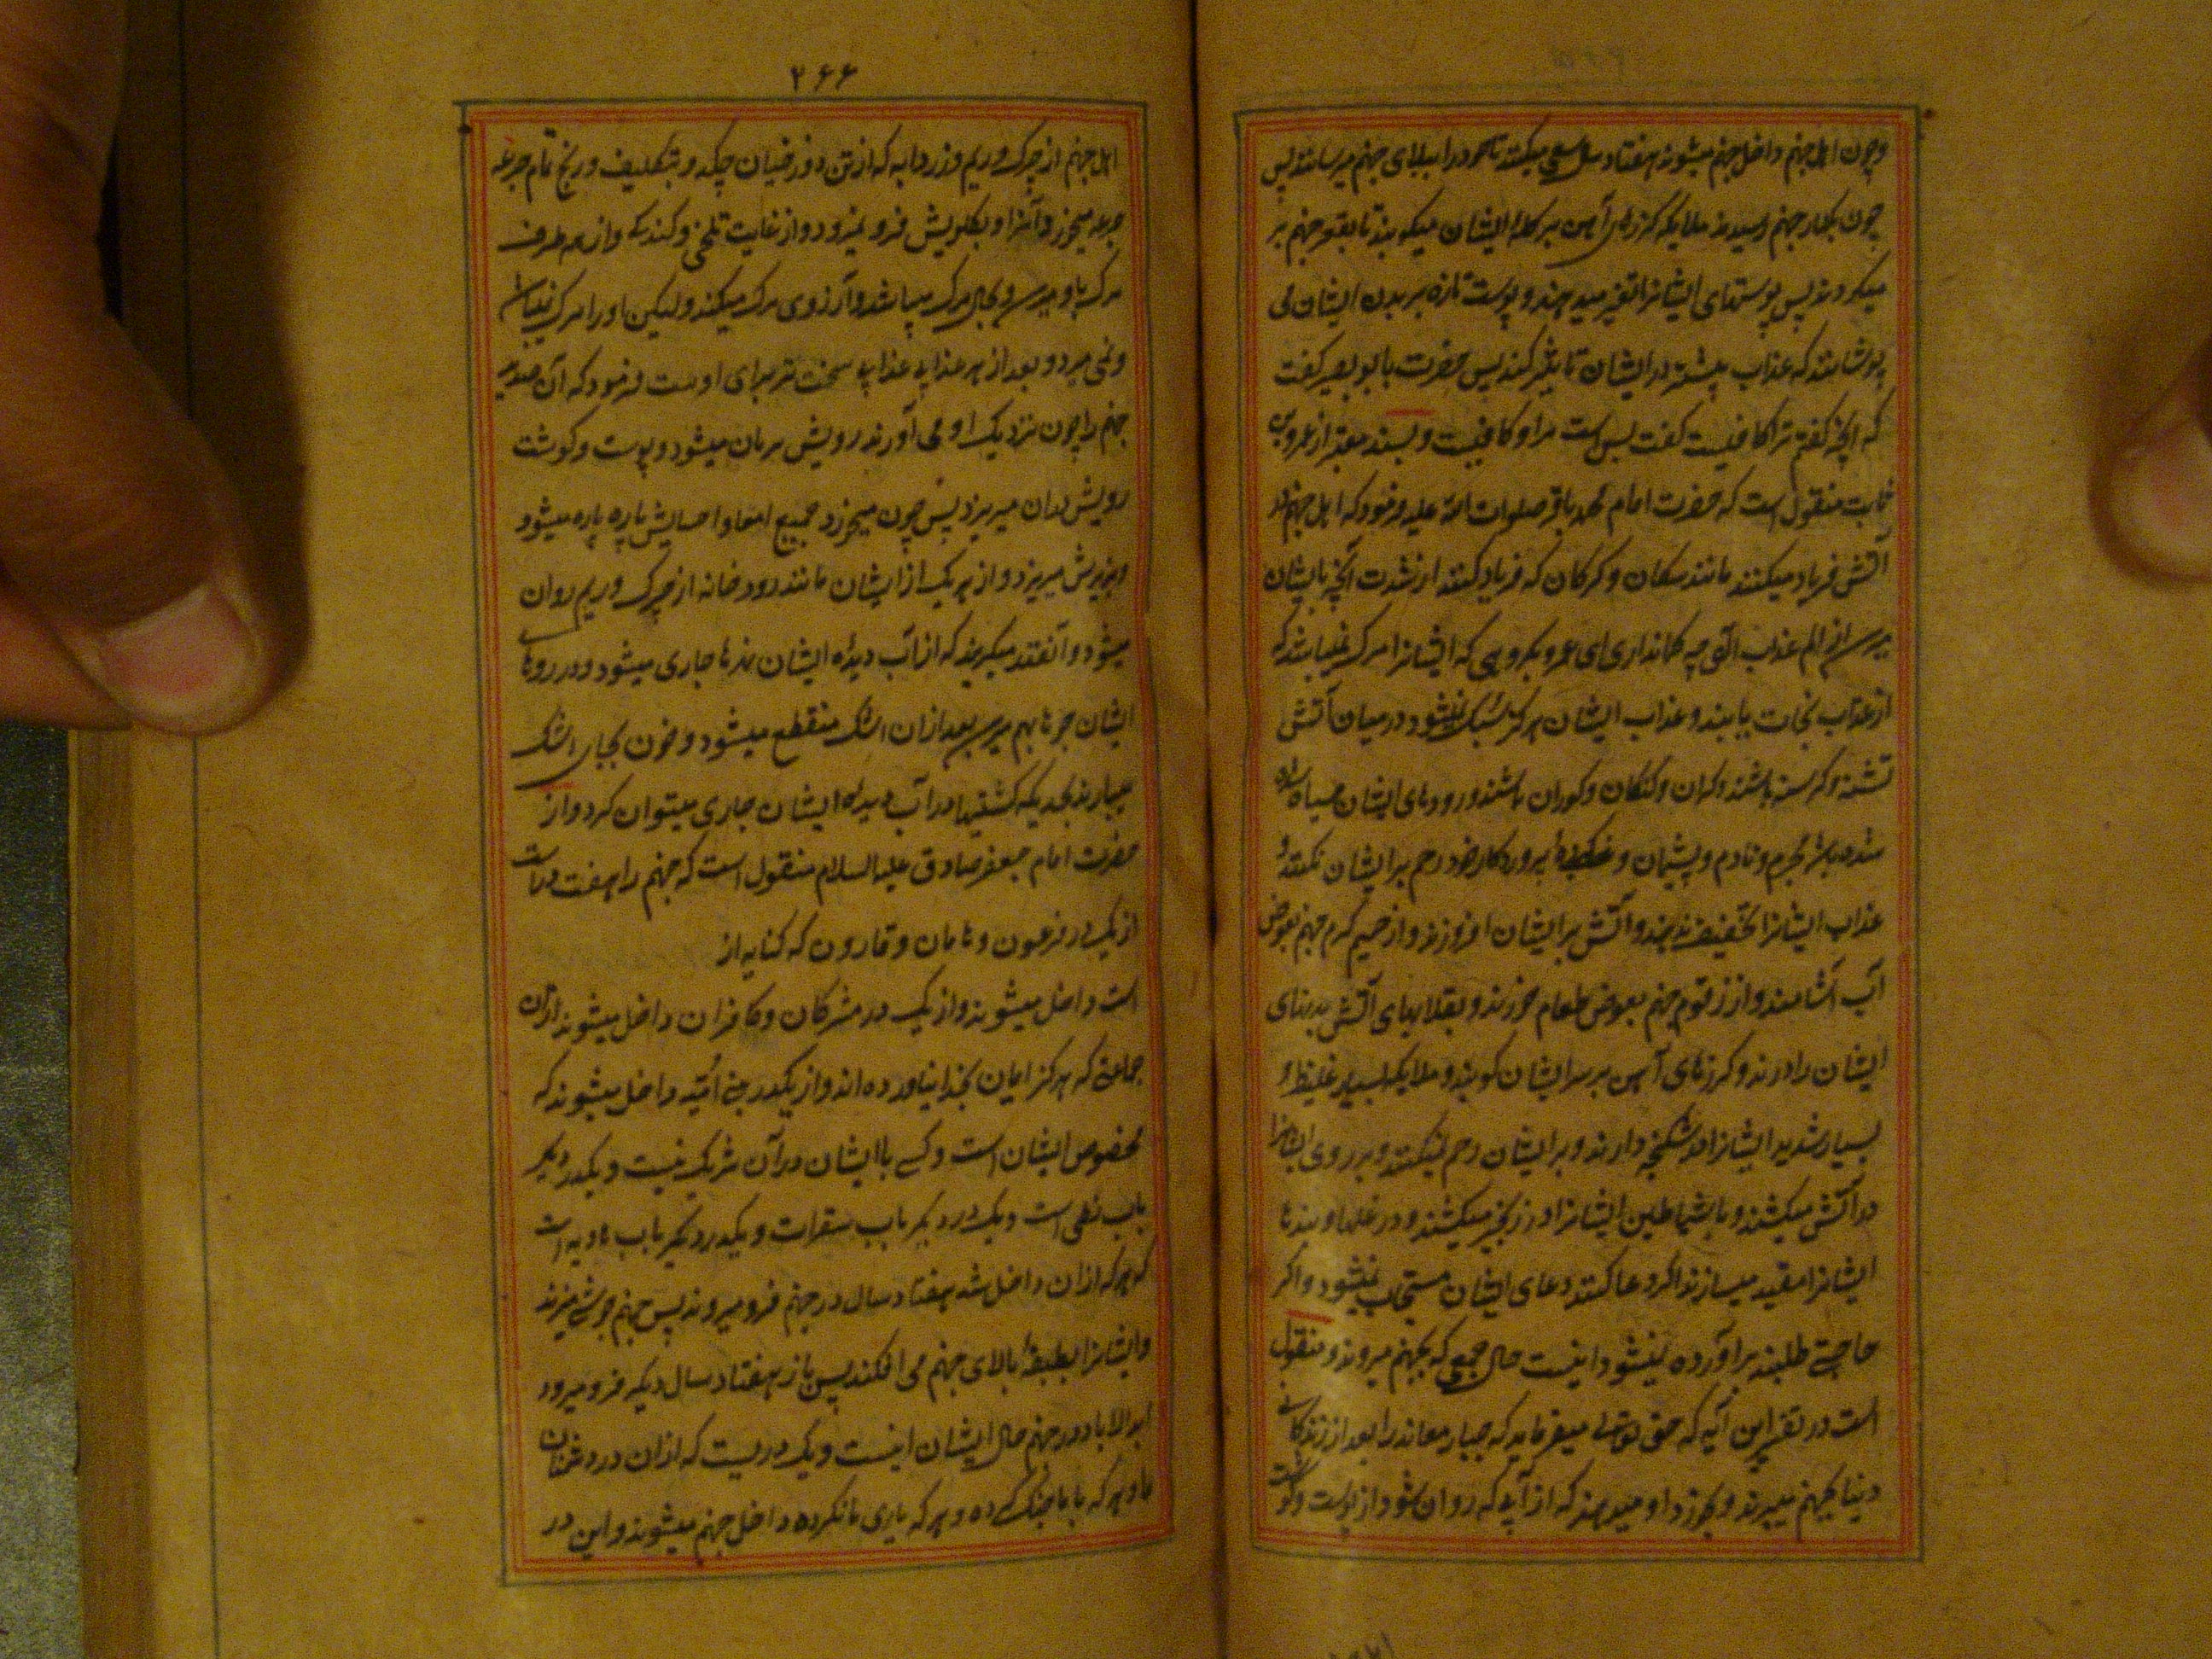 و چون اهل جهنم داخل جهنم میشوند هفتاد سال سعی میکنند تا خود را ببالای جهنم میرسانند پس
چون بکنار جهنم رسیدند ملایکه کرزهای آهن بر کله ایشان میکوبند تا بقعر جهنم بر
میکردند پس پوستهای ایشانرا تغیر میدهند و پوست تازه بر بدن ایشان می
پوشانند که عذاب بیشتر در ایشان تاثیر کند پس حضرت بابو بصیر کفت
که انچه کفتم ترا کافیست کفت بس است مرا و کافیست و بسند معتبر از عمرو بن
ثابت منقول است که حضرت امام محمد باقر صلوات الله علیه فرمود که اهل جهنم در
آتش فریاد میکنند مانند سکان و کرکان که فریاد کنند از شدت آنچه بایشان
میرسد از الم عذاب الهی چه کمانداری ای عمرو بکروهی که ایشانرا مرک نمیباشد که
از عذاب نجات یابند و عذاب ایشان هرکز سبک نمیشود در میان آتش
تشنه و کرسنه باشند و کران و کنکان و کوران باشند و روهای ایشان سیاه شده
شده باشد محروم و نادم و پشیمان و غضب کرده پروردکار خود رحم بر ایشان نکنند و
عذاب ایشانرا تخفیف ندهند و آتش بر ایشان افروزند و از حمیم کرم جهنم بعوض
آب آشامند و از زقوم جهنم بعوض طعام خورند و بقلابهای آتش بدنهای
ایشان را درند و کرزهای آهن بر سر ایشان کوبند و ملایکه بسیار غلیظ و
بسیار شدید ایشانرا در شکنجه دارند و بر ایشان رحم نمیکنند و بر روی ایشانرا
در آتش میکشند و با شیاطین ایشانرا در زنجیر میکشند و در غلها و بندها
ایشانرا مقید میسازند اکر دعا کنند دعای ایشان مستجاب نمیشود و اکر
حاجتی طلبند برآورده نمیشود اینست حال جمعی که بجهنم میروند و منقول
است در تفسیر این آیه که حق تعالی میفرماید که جبار معاند را بعد از زندکانی
دنیا بجهنم میبرند و بخورد او میدهند که از آبی که روان شود از پوست و کوشت
۲۶۶
اهل جهنم از چرک و ریم و زردابه که از تن دوزخیان چکد و بتکلیف و رنج تمام جرعه
جرعه میخورد آنرا و بکلویش فرو نمیرود و از غایت تلخی و کندیکه و از هر طرف
مرک باو میرسد و بحال مرک میباشد و آرزوی مرک میکند و لیکن او را مرک نمیباشد
و نمی میرد و بعد از هر عذاب عذابی سخت تر برای اوست فرمود که آن صدید
جهنم را چون نزدیک او می آورند رویش بریان میشود و پوست و کوشت
رویش بدان میریزد پس چون میخورد جمیع امعا و احشایش پاره پاره میشود
و بزیرش میریزد و از هر یک از ایشان مانند رودخانه از چرک و ریم روان
میشود و آنقدر میکریند که از آب دیده ایشان نهرها جاری میشود و در روها
ایشان جوها بهم میرسد بعد از آن اشک منقطع میشود و خون بجای اشک
میبارند بحدیکه کشتیها در آب دیده ایشان جاری میتوان کرد و از
حضرت امام جعفر صادق علیه السلام منقول است که جهنم را هفت در است
از یکدر فرعون و هامان و قارون که کنایه از
است داخل میشوند و از یک در مشرکان و کافران داخل میشوند از آن
جماعتی که هرکز ایمان بخدا نیاورده اند و از یکدر بنی امیه داخل میشوند که
مخصوص ایشان است و کسی با ایشان در آن شریک نیست و یکدر دیکر
باب لظی است و یکدر دیکر باب سقر است و یکدر دیکر باب هاویه است
که هر که از ان داخل شد هفتاد سال در جهنم فرو میروند پس جهنم جوشی میزند
و ایشانرا بطبقه بالای جهنم می افکند پس باز هفتاد سال دیکر فرو میرود
ابد الاباد در جهنم حال ایشان اینست و یک دریست که از ان در دشمنان
ما و هر که با ما جنک کرده و هر که یاری ما نکرده داخل جهنم میشوند و این در